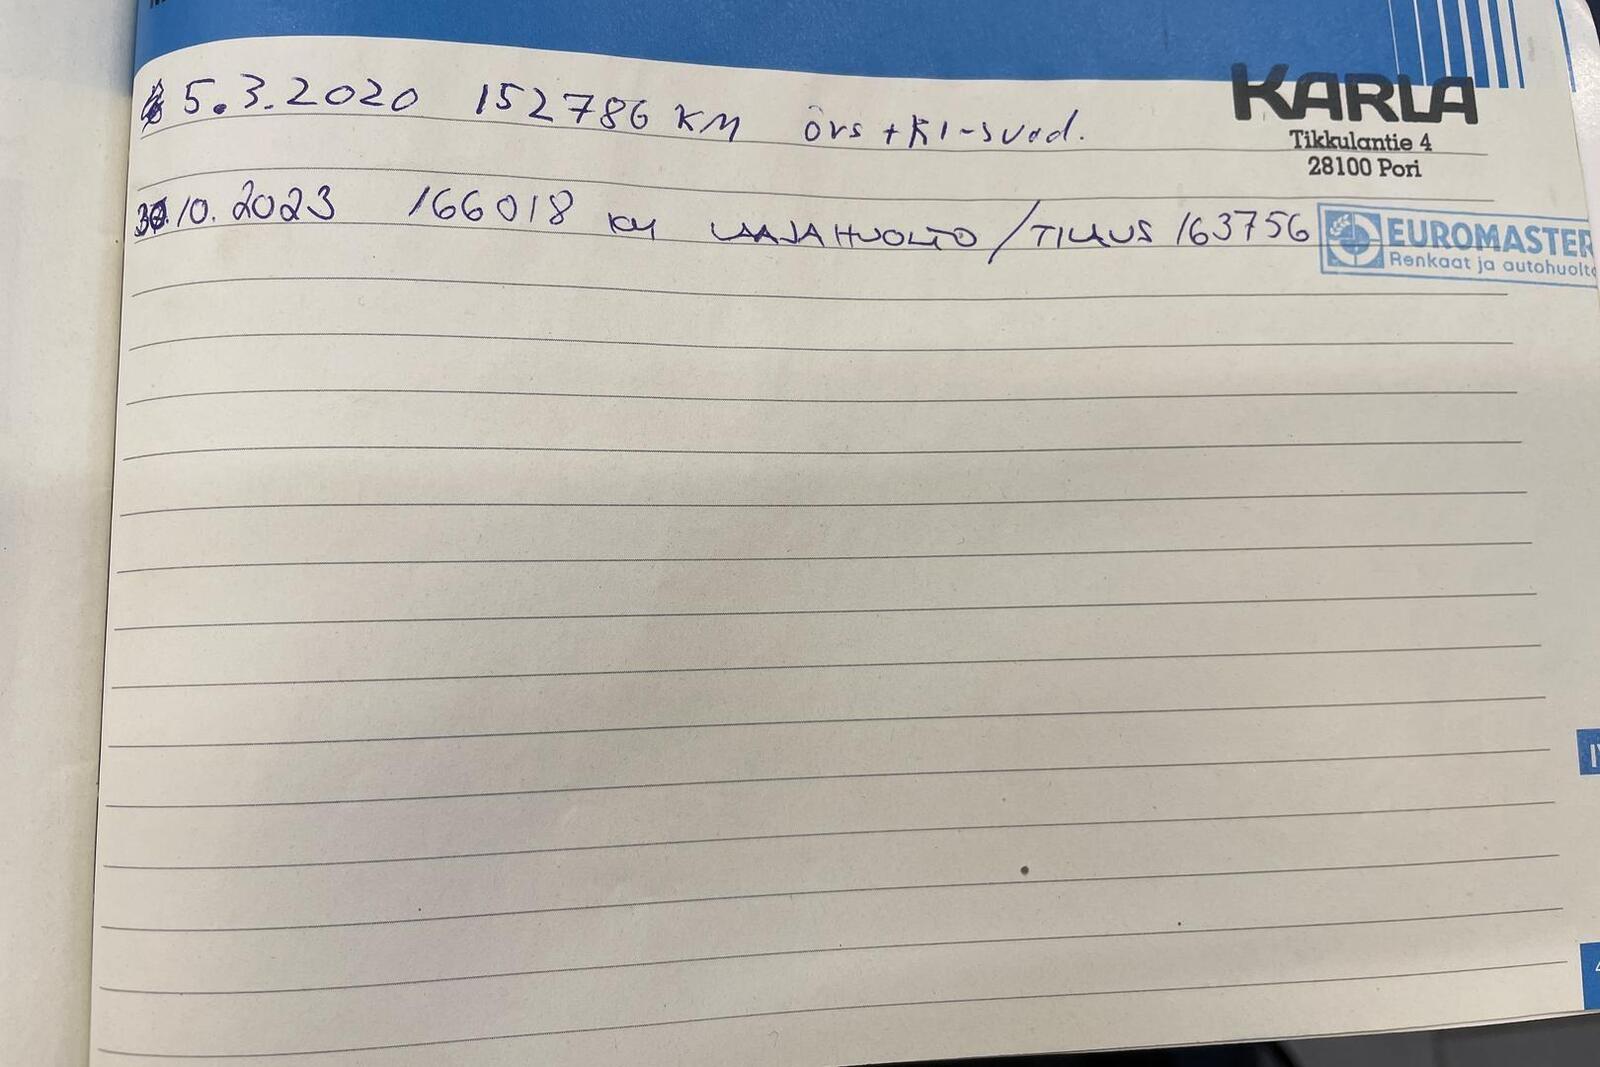 5.3.2020 152786 KM
KARLA
Tikkulantie 4
28100 Pori
10.2023 166018 KM LAAJAHUOLTO / TILAUS 163756
EUROMASTER
Renkaat ja autohuolto